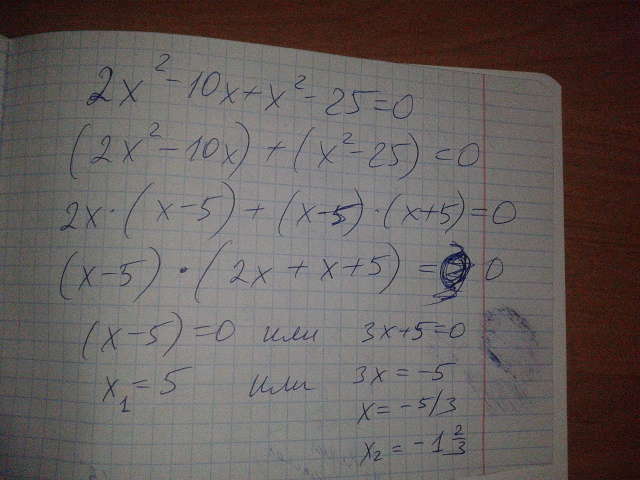 2x² - 10x + x² - 25 = 0
(2x² - 10x) + (x² - 25) = 0
2x · (x - 5) + (x - 5) · (x + 5) = 0
(x - 5) · (2x + x + 5) = 0
(x - 5) = 0 или 3x + 5 = 0
x₁ = 5 или 3x = -5
x = -5/3
x₂ = -1 2/3